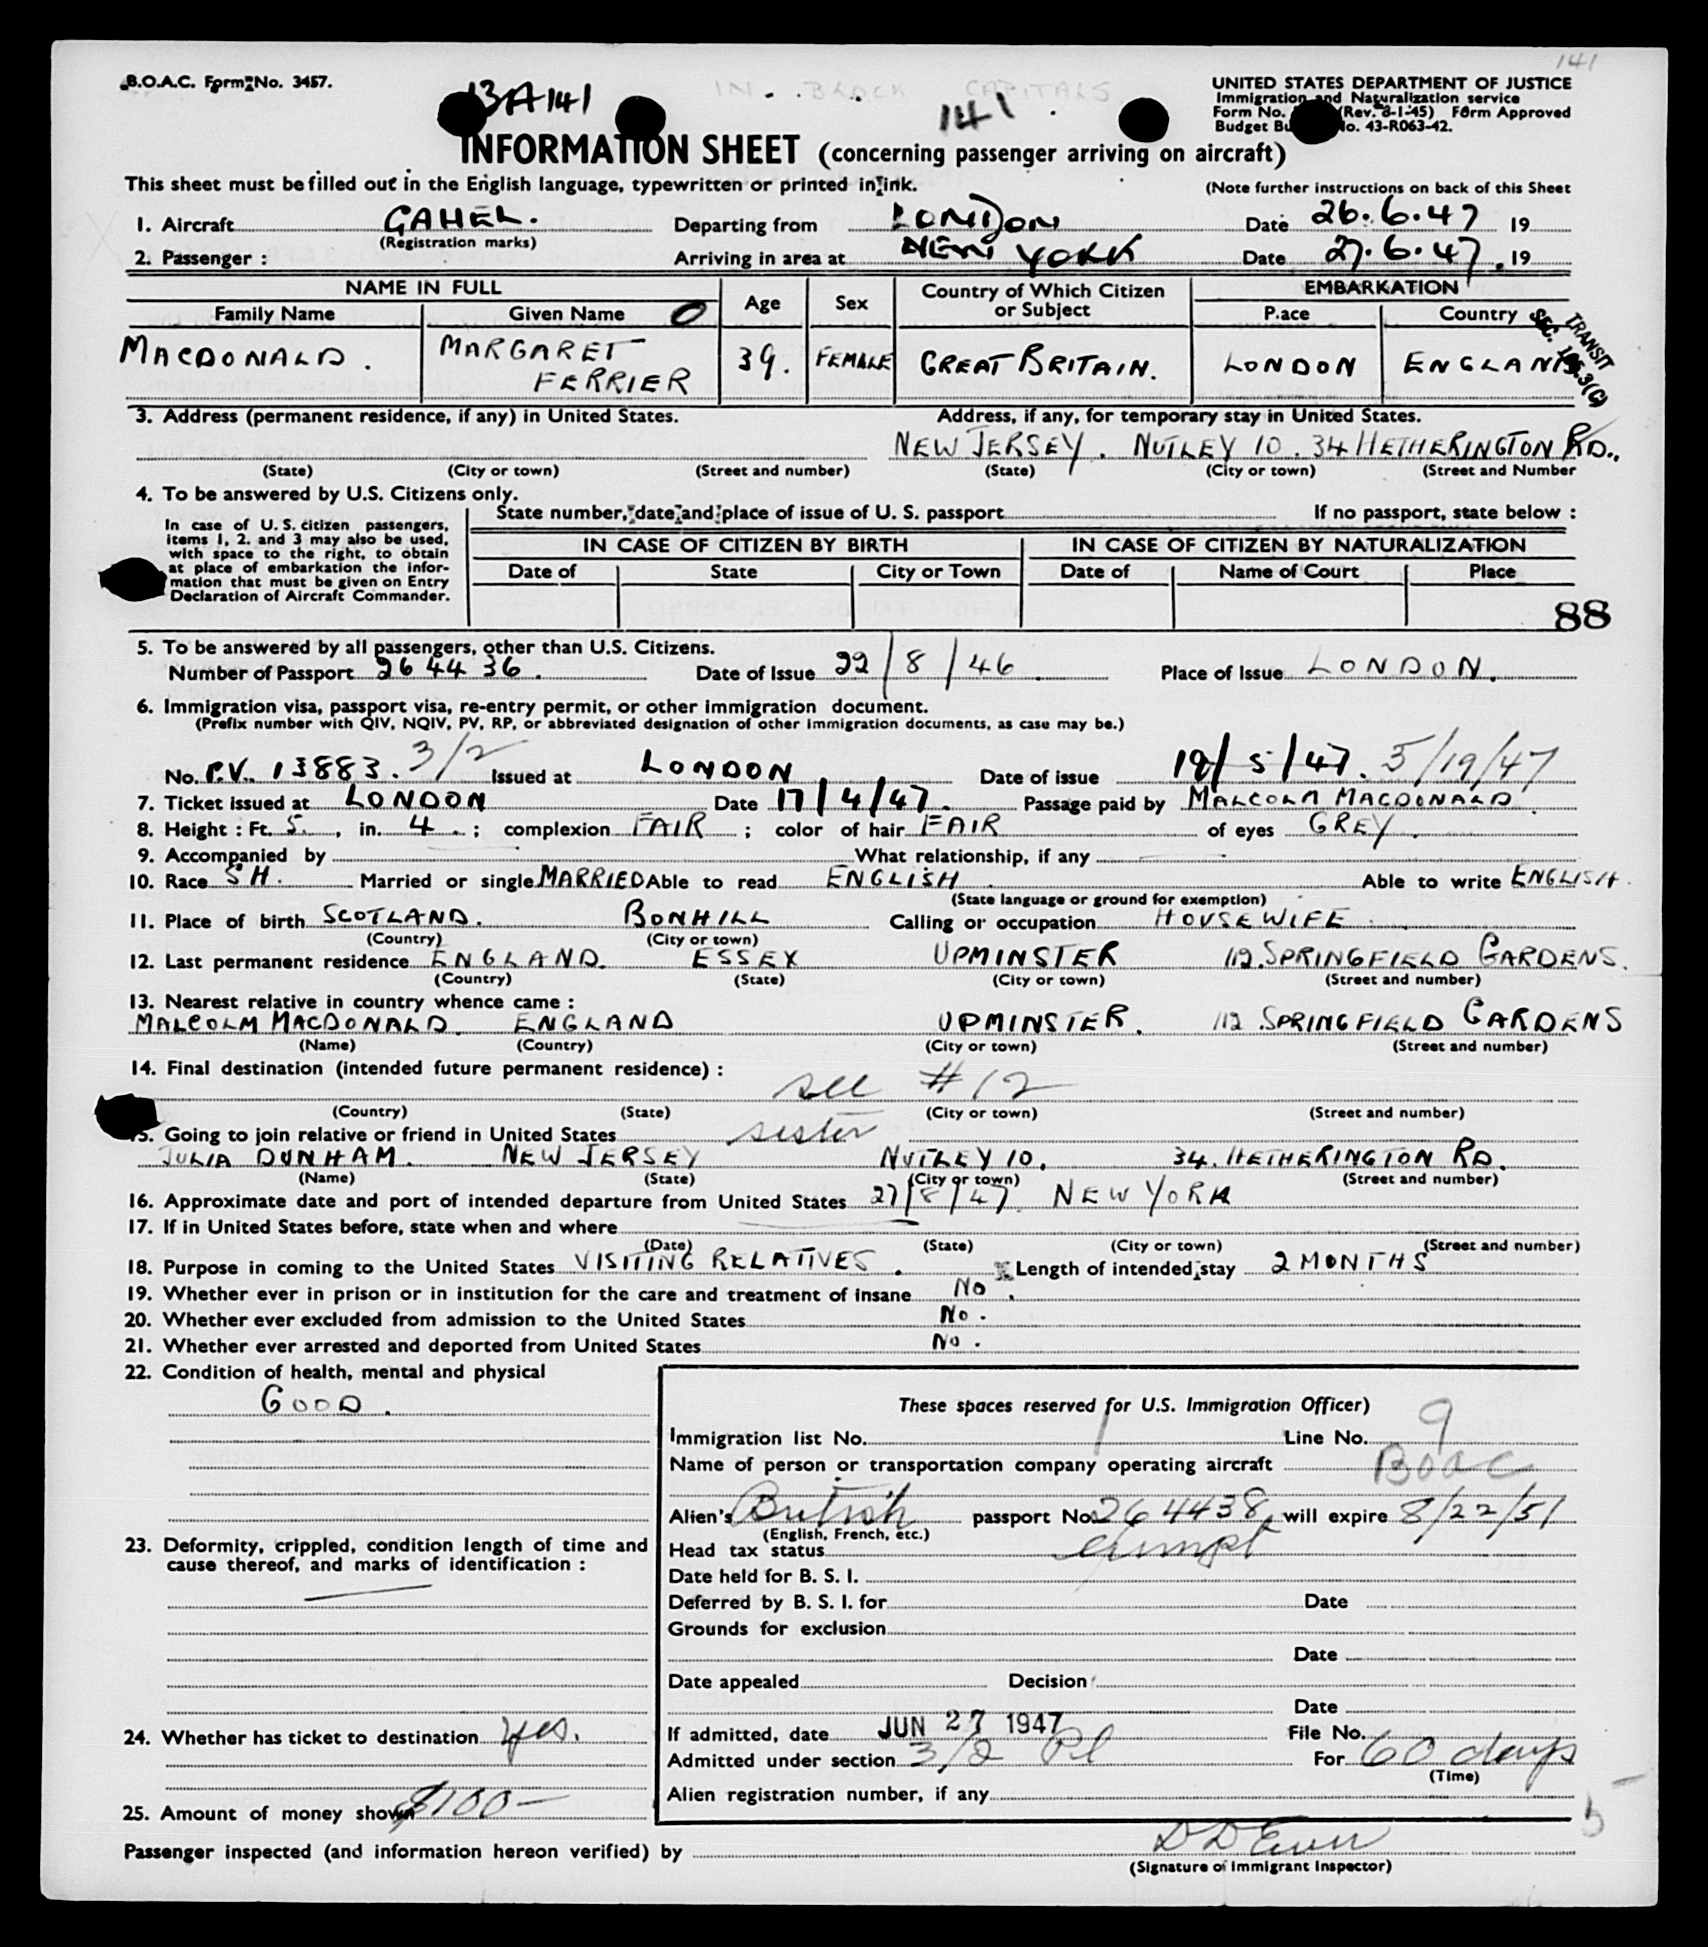 141
B.O.A.C. Form No. 3457.
BA 141
IN BLOCK CAPITALS
141
UNITED STATES DEPARTMENT OF JUSTICE
Immigration and Naturalization service
Form No. (Rev. 8-1-45) Form Approved
Budget Bu No. 43-R063-42.
INFORMATION SHEET (concerning passenger arriving on aircraft)
This sheet must be filled out in the English language, typewritten or printed in ink. (Note further instructions on back of this Sheet
1. Aircraft GAHEL. Departing from LONDON Date 26.6.47 19
(Registration marks)
2. Passenger : Arriving in area at NEW YORK Date 27.6.47. 19
NAME IN FULL Age Sex Country of Which Citizen or Subject EMBARKATION
Family Name Given Name O Place Country
MACDONALD. MARGARET FERRIER 39. FEMALE GREAT BRITAIN. LONDON ENGLAND
TRANSIT
3. Address (permanent residence, if any) in United States. Address, if any, for temporary stay in United States.
NEW JERSEY. NUTLEY 10. 34 HETHERINGTON RD.,
(State) (City or town) (Street and number) (State) (City or town) (Street and Number
4. To be answered by U.S. Citizens only.
State number, date and place of issue of U. S. passport If no passport, state below :
In case of U. S. citizen passengers,
items 1, 2. and 3 may also be used,
with space to the right, to obtain
at place of embarkation the infor-
mation that must be given on Entry
Declaration of Aircraft Commander.
IN CASE OF CITIZEN BY BIRTH IN CASE OF CITIZEN BY NATURALIZATION
Date of State City or Town Date of Name of Court Place
88
5. To be answered by all passengers, other than U.S. Citizens.
Number of Passport 264436. Date of Issue 22/8/46. Place of Issue LONDON.
6. Immigration visa, passport visa, re-entry permit, or other immigration document.
(Prefix number with QIV, NQIV, PV, RP, or abbreviated designation of other immigration documents, as case may be.)
No. P.V. 13883. 3/2 Issued at LONDON Date of issue 19/5/47. 5/19/47
7. Ticket issued at LONDON Date 17/4/47. Passage paid by MALCOLM MACDONALD.
8. Height : Ft. 5. , in. 4. ; complexion FAIR ; color of hair FAIR of eyes GREY.
9. Accompanied by What relationship, if any
10. Race SH. Married or single MARRIED Able to read ENGLISH. Able to write ENGLISH.
(State language or ground for exemption)
11. Place of birth SCOTLAND. BONHILL Calling or occupation HOUSEWIFE
(Country) (City or town)
12. Last permanent residence ENGLAND. ESSEX UPMINSTER 112. SPRINGFIELD GARDENS.
(Country) (State) (City or town) (Street and number)
13. Nearest relative in country whence came :
MALCOLM MACDONALD. ENGLAND UPMINSTER. 112 SPRINGFIELD GARDENS
(Name) (Country) (City or town) (Street and number)
14. Final destination (intended future permanent residence) :
see #12
(Country) (State) (City or town) (Street and number)
15. Going to join relative or friend in United States sister
JULIA DUNHAM. NEW JERSEY NUTLEY 10. 34. HETHERINGTON RD.
(Name) (State) (City or town) (Street and number)
16. Approximate date and port of intended departure from United States 27/8/47. NEW YORK
17. If in United States before, state when and where
(Date) (State) (City or town) (Street and number)
18. Purpose in coming to the United States VISITING RELATIVES. Length of intended stay 2 MONTHS
19. Whether ever in prison or in institution for the care and treatment of insane NO.
20. Whether ever excluded from admission to the United States NO.
21. Whether ever arrested and deported from United States NO.
22. Condition of health, mental and physical
GOOD.
23. Deformity, crippled, condition length of time and
cause thereof, and marks of identification :
24. Whether has ticket to destination yes.
25. Amount of money shown $100-
These spaces reserved for U.S. Immigration Officer)
Immigration list No. 1 Line No. 9
Name of person or transportation company operating aircraft BOAC
Alien's British passport No. 264438, will expire 8/22/51
(English, French, etc.)
Head tax status exempt
Date held for B. S. I.
Deferred by B. S. I. for Date
Grounds for exclusion
Date
Date appealed Decision
Date
If admitted, date JUN 27 1947 File No.
Admitted under section 3/2 Pl For 60 days
(Time)
Alien registration number, if any
Passenger inspected (and information hereon verified) by
(Signature of Immigrant Inspector)